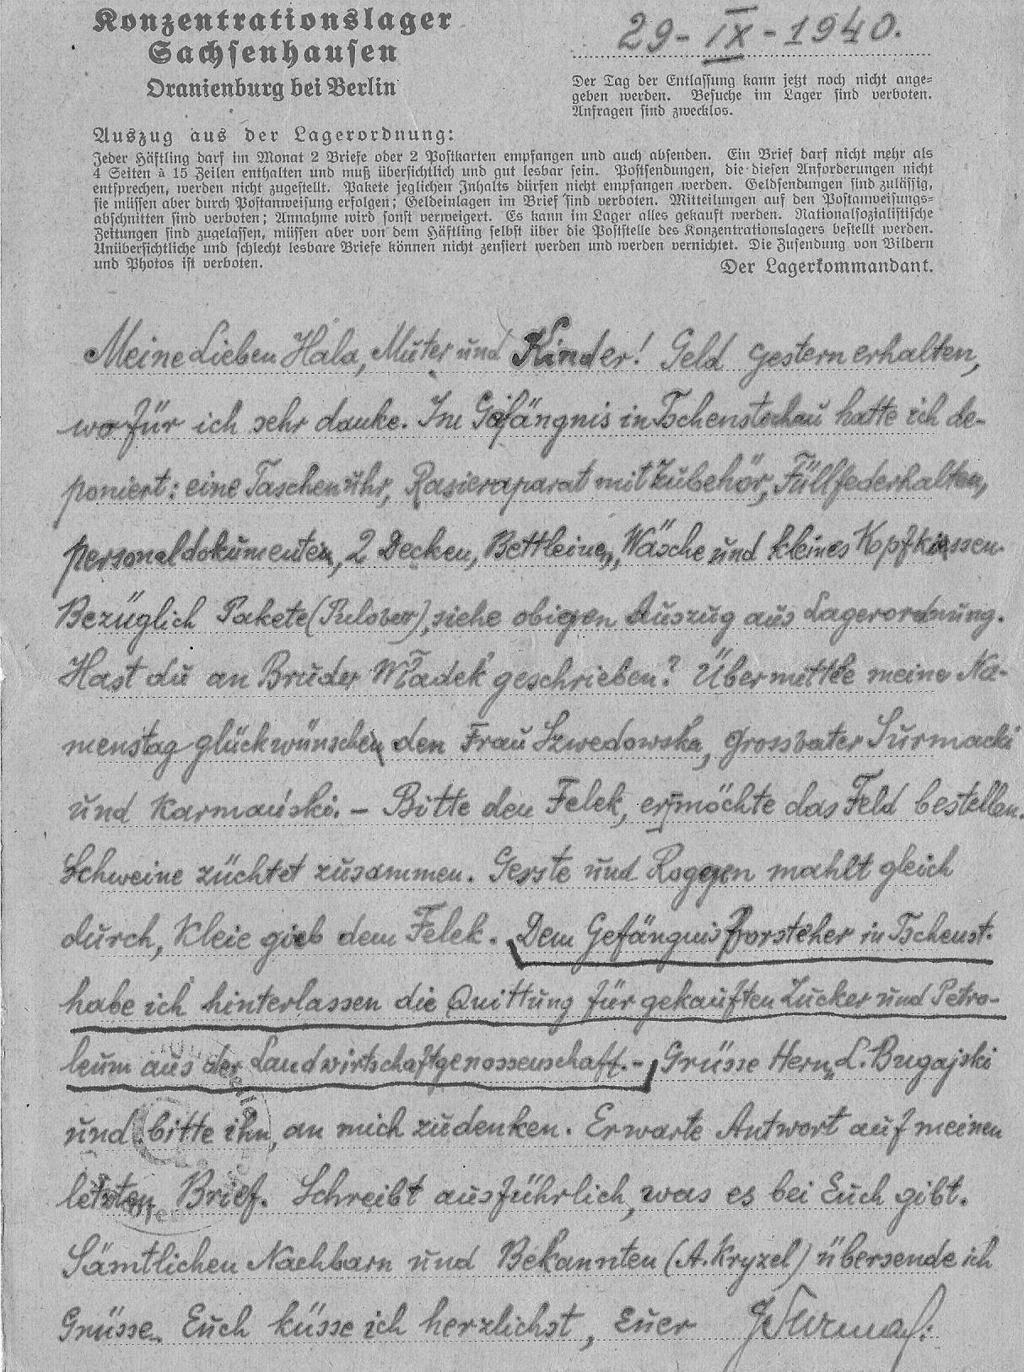 Konzentrationslager
Sachsenhausen
Oranienburg bei Berlin
29-IX-1940.
Der Tag der Entlassung kann jetzt noch nicht ange=
geben werden. Besuche im Lager sind verboten.
Anfragen sind zwecklos.
Auszug aus der Lagerordnung:
Jeder Häftling darf im Monat 2 Briefe oder 2 Postkarten empfangen und auch absenden. Ein Brief darf nicht mehr als
4 Seiten à 15 Zeilen enthalten und muß übersichtlich und gut lesbar sein. Postsendungen, die diesen Anforderungen nicht
entsprechen, werden nicht zugestellt. Pakete jeglichen Inhalts dürfen nicht empfangen werden. Geldsendungen sind zulässig,
sie müssen aber durch Postanweisung erfolgen; Geldeinlagen im Brief sind verboten. Mitteilungen auf den Postanweisungs=
abschnitten sind verboten; Annahme wird sonst verweigert. Es kann im Lager alles gekauft werden. Nationalsozialistische
Zeitungen sind zugelassen, müssen aber von dem Häftling selbst über die Poststelle des Konzentrationslagers bestellt werden.
Unübersichtliche und schlecht lesbare Briefe können nicht zensiert werden und werden vernichtet. Die Zusendung von Bildern
und Photos ist verboten.
Der Lagerkommandant.
Meine Lieben Hala, Muter und Kinder! Geld gestern erhalten,
wofür ich sehr danke. Im Gefängnis in Tschenstochau hatte ich de-
poniert: eine Taschenuhr, Rasieraparat mit Zubehör, Füllfederhalten,
personaldokumenten, 2 Decken, Bettleinen, Wäsche und kleines Kopfkissen.
Bezüglich Pakete (Pulover), siehe obigen Auszug aus Lagerordnung.
Hast du an Bruder Władek geschrieben? Übermittle meine Na-
menstag glückwünschen den Frau Szwedowska, Grossvater Surmacki
und Karmański. – Bitte den Felek, er möchte das Feld bestellen.
Schweine züchtet zusammen. Gerste und Roggen mahlt gleich
durch, Kleie gieb dem Felek. Dem Gefängnisvorsteher in Tschenst.
habe ich hinterlassen die Quittung für gekauften Zucker und Petro-
leum aus der Landwirtschaftgenossenschaft. – Grüsse Hern L. Bugajski
und bitte ihn, an mich zu denken. Erwarte Antwort auf meinen
letzten Brief. Schreibt ausführlich, was es bei Euch gibt.
Sämtlichen Nachbarn und Bekannten (A. Kryzel) übersende ich
Grüsse. Euch küsse ich herzlichst, Euer